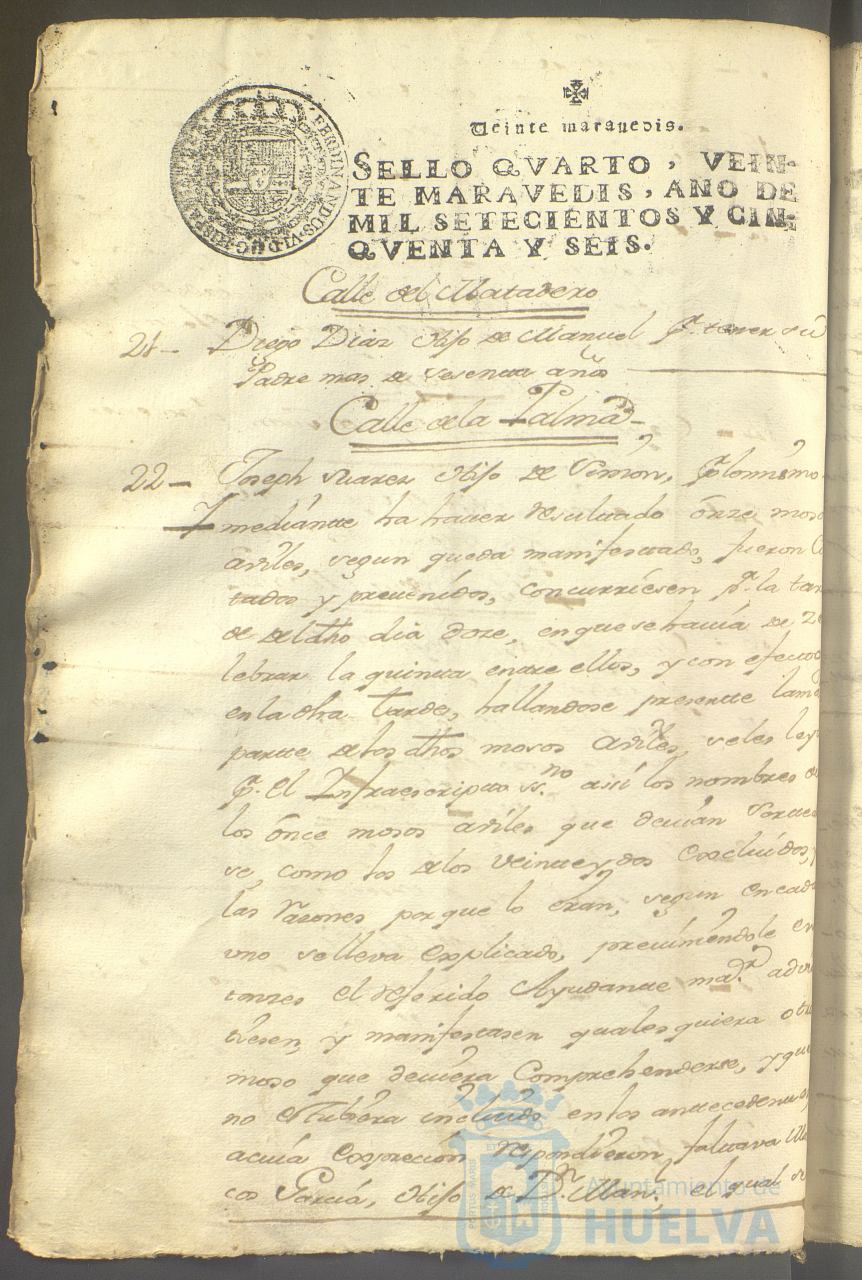 FERDINANDUS·VI·D·G·HISPANIAR
Veinte marauedis.
SELLO QVARTO, VEIN-
TE MARAVEDIS, AÑO DE
MIL SETECIENTOS Y CIN-
QVENTA Y SEIS.
Calle del Matadero
21- Diego Diaz Hijo de Manuel pr. tener su
Padre mas de sesenta años
Calle de la Palma
22- Joseph Suarez Hijo de Simon, pr. lo mismo
Y mediante ha haver resultado ônze mosos
aviles, segun queda manifestado, fueron Ci
tados y prevenidos, concurriesen pr. la tar
de del dho dia doze, en que se havia de Ze
lebrar la quinta entre ellos, y con efecto
en la dha tarde, hallandose presente la m
parte de los dhos mosos aviles, se les ley
pr. el Infraescripto ss.no asi los nombres de
los ônce mosos aviles que devian sortea
se, como los de los veinte y dos Excluidos, y
las razones por que lo eran, segun en cada
uno se lleva explicado, previniendole en
tonzes el referido Ayudante mar. advir
tiesen, y manifestasen quales quiera otro
moso que deviera Comprehenderse, y que
no estubiera incluido en los antecedentes
a cuia Exprecion respondieron, faltava Mar
cos Garcia, Hijo de Dn. Man.l el qual s
Ayuntamiento de
HUELVA